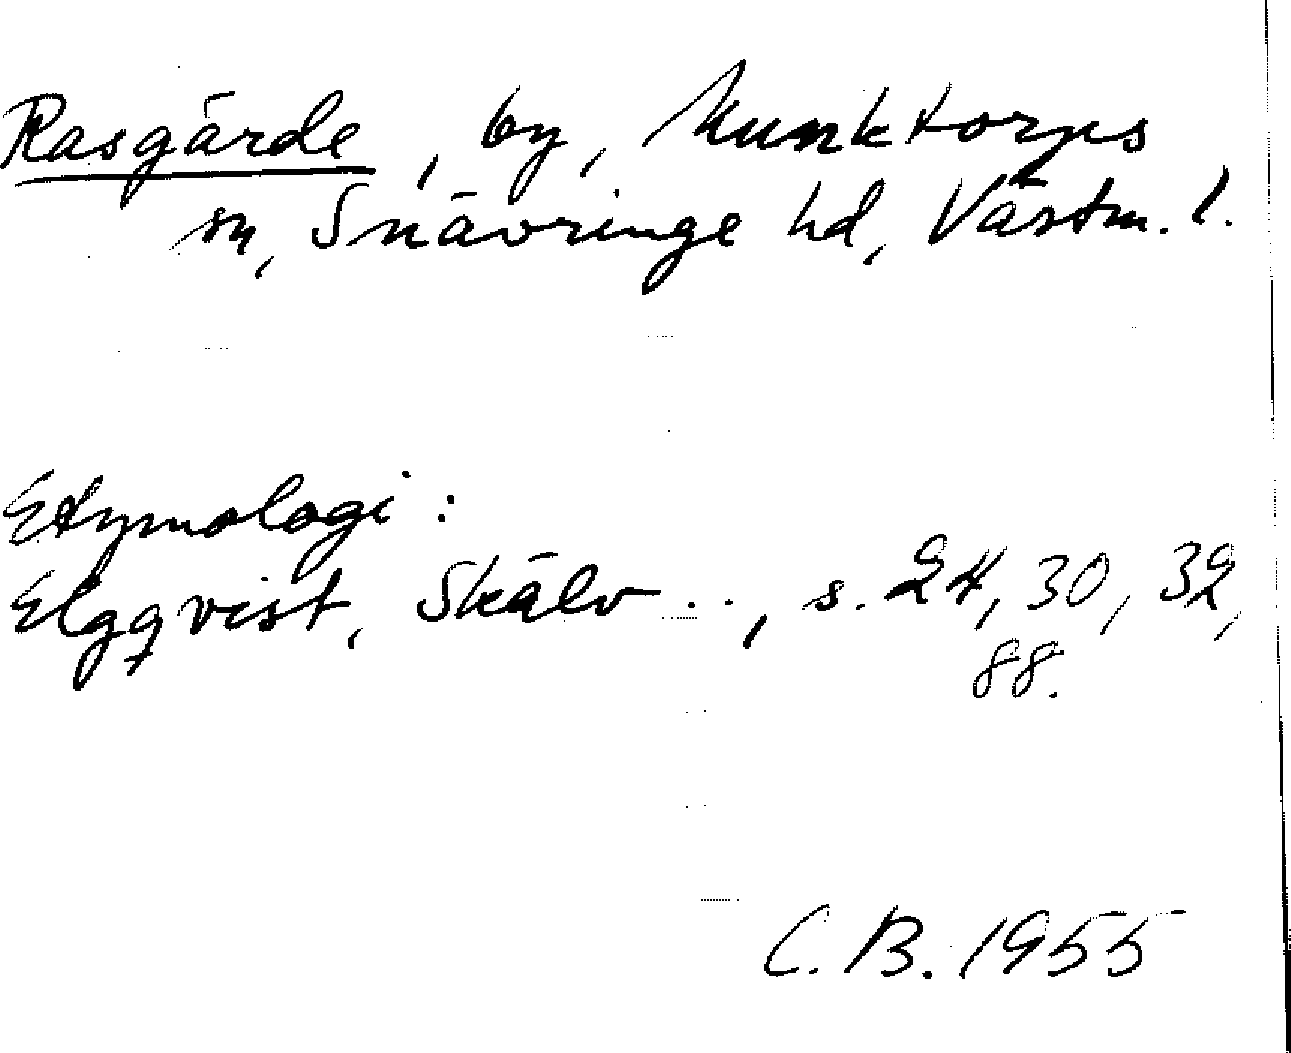 Rasgärde, by, Munktorps
sn, Snävringe hd, Västm. l.
Etymologi:
Elgqvist, Skälv..., s. 24, 30, 32,
88.
C.B. 1955